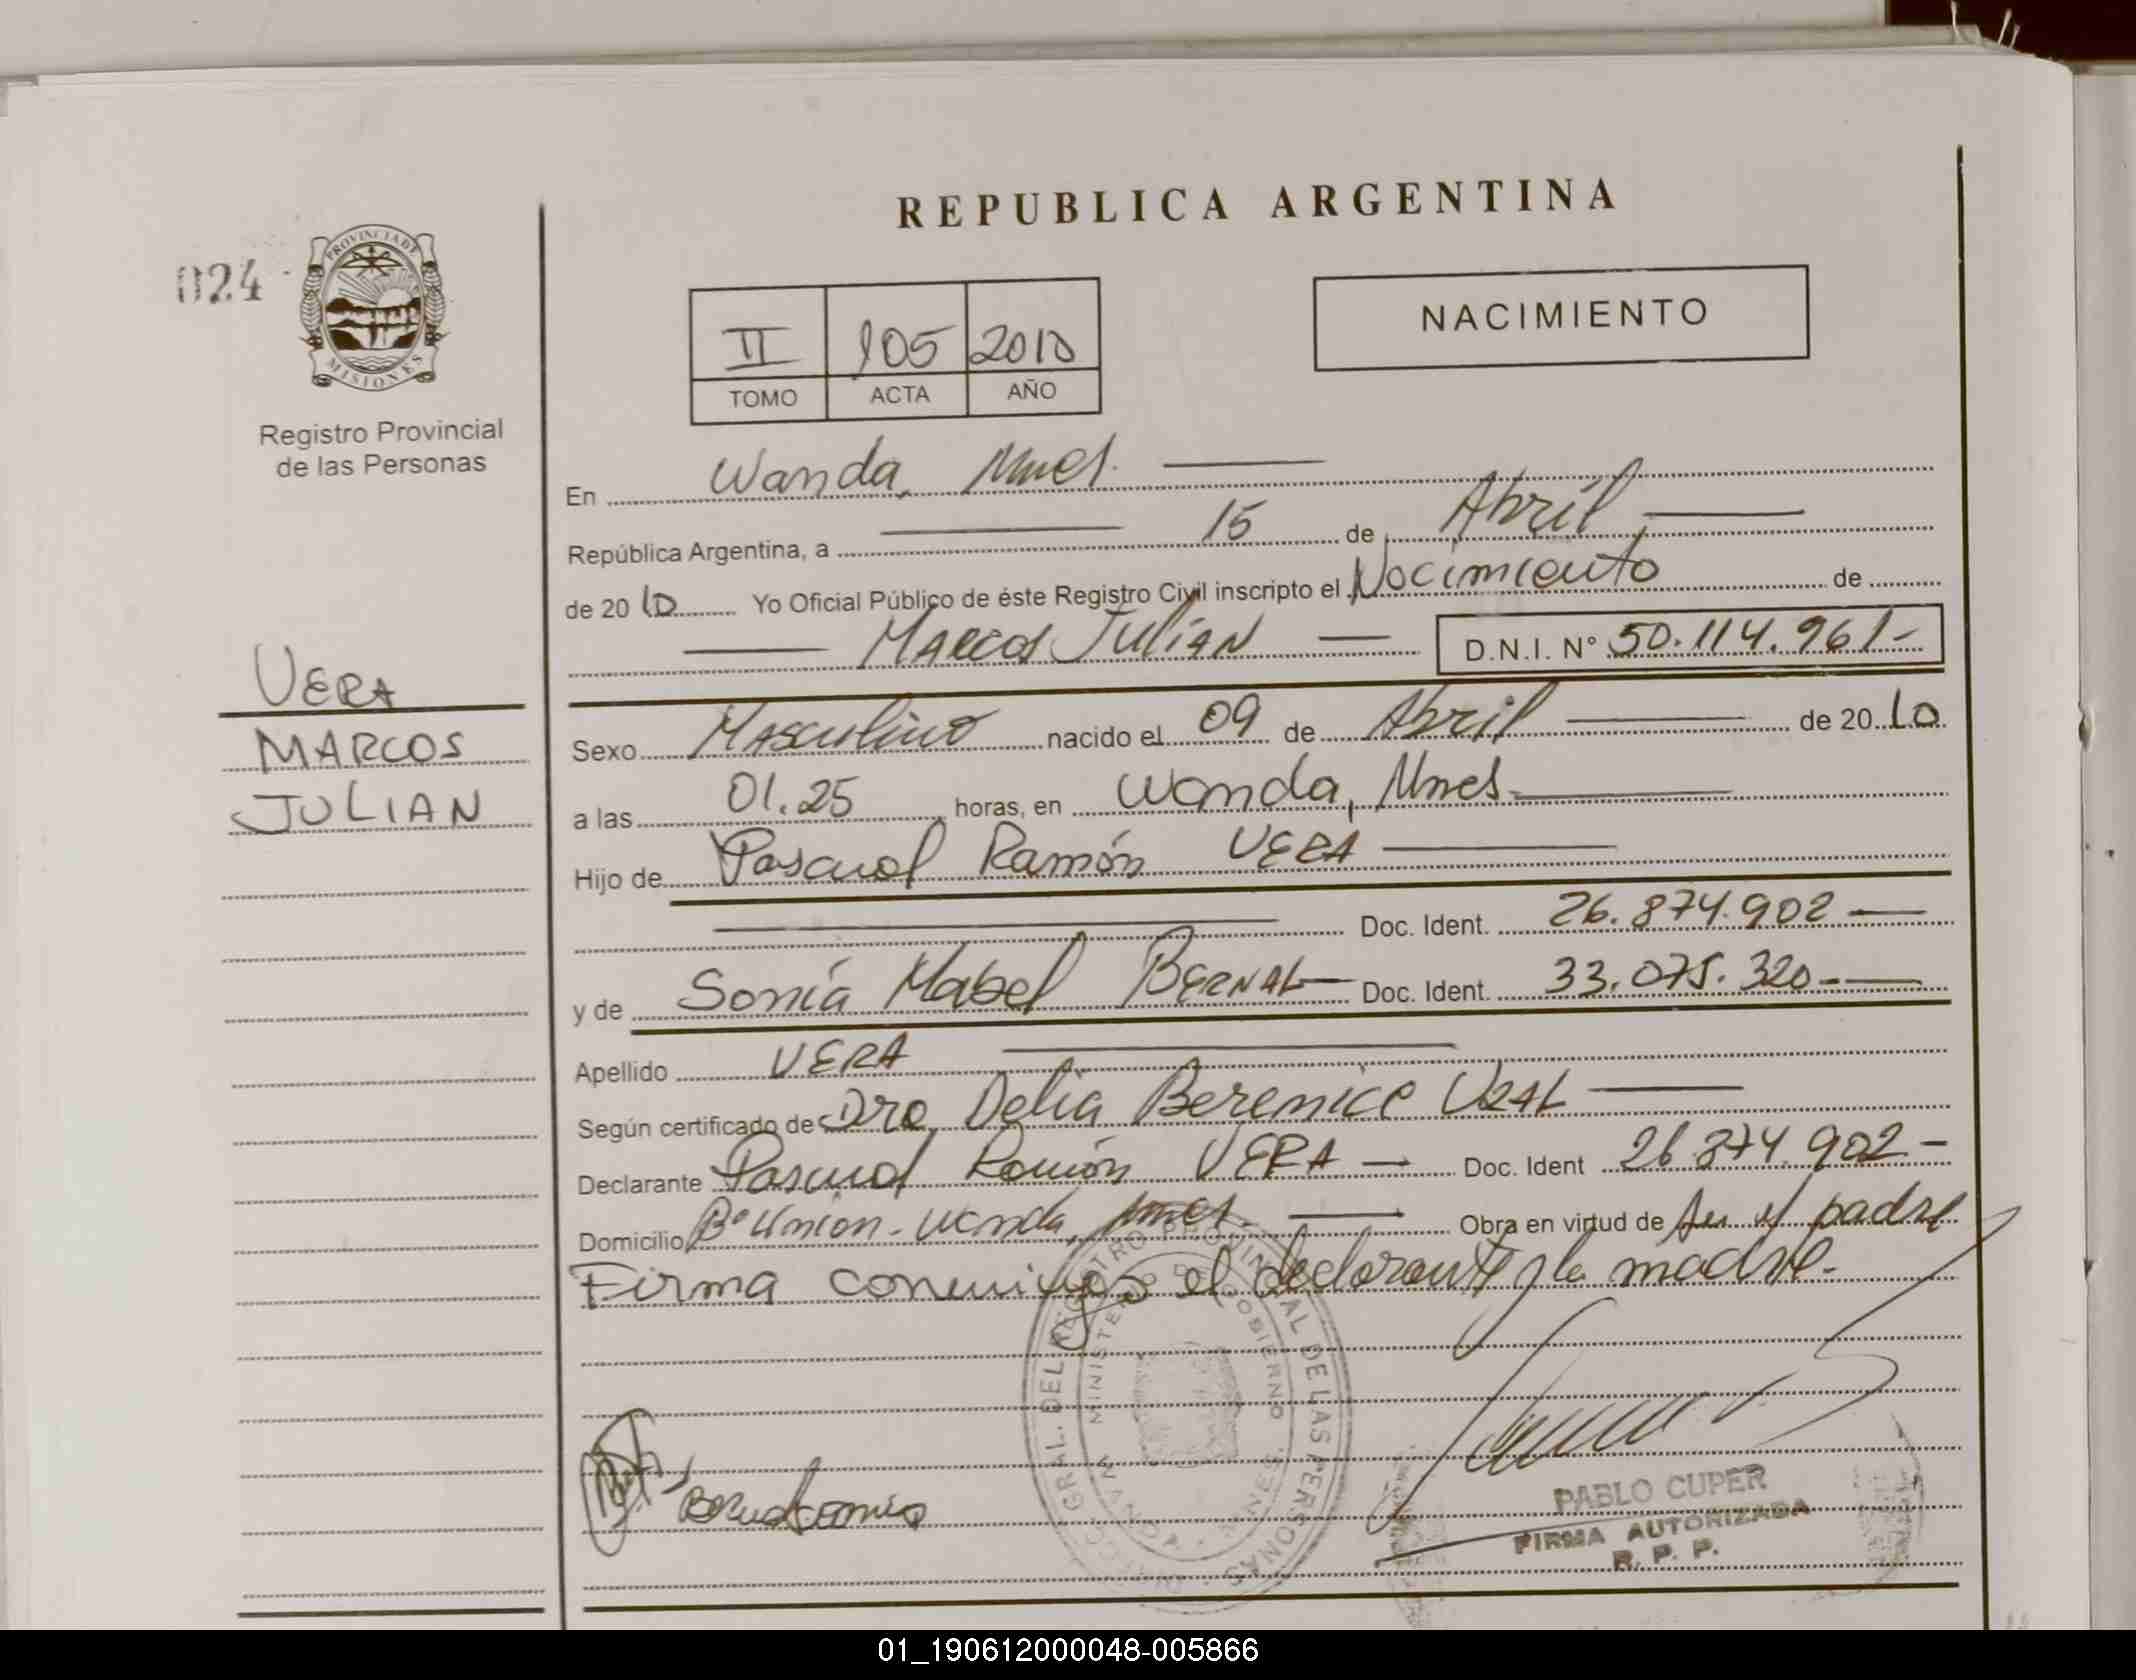 REPUBLICA ARGENTINA
024
PROVINCIA DE
MISIONES
Registro Provincial
de las Personas
II 105 2010
TOMO ACTA AÑO
NACIMIENTO
En Wanda, Mnes.
República Argentina, a 15 de Abril
de 2010 Yo Oficial Público de éste Registro Civil inscripto el Nacimiento de
Marcos Julián D.N.I. Nº 50.114.961-
VERA
MARCOS
JULIAN
Sexo Masculino nacido el 09 de Abril de 2010
a las 01.25 horas, en Wanda, Mnes
Hijo de Pascual Ramón VERA
Doc. Ident. 26.874.902
y de Sonia Mabel BERNAL Doc. Ident. 33.075.320-
Apellido VERA
Según certificado de Dra. Delia Berenice
Declarante Pascual Ramón VERA Doc. Ident 26.874.902-
Domicilio Bº Unión - Wanda, Mnes. Obra en virtud de Ser el padre
Firma conmigo el declarante y la madre.
DIRECC. GRAL. DEL REGISTRO PROVINCIAL DE LAS PERSONAS
MINISTERIO DE GOBIERNO
WANDA MNES.
Bernal Sonia
PABLO CUPER
FIRMA AUTORIZADA
R. P. P.
01_190612000048-005866